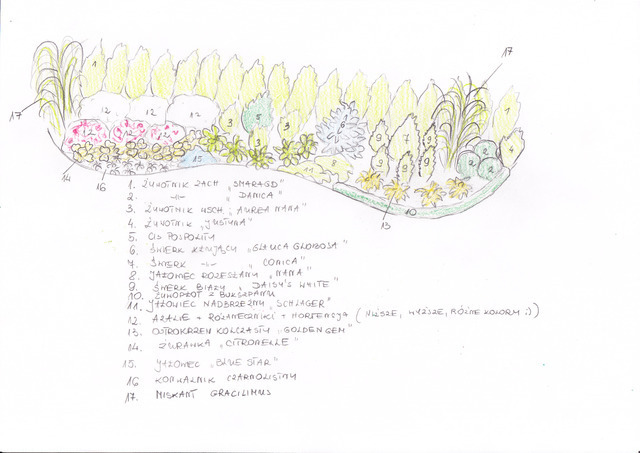 17
1
12 12 12
3 5 3
6
9 7 9
1
17
12 12 12
3
15
11 8
9 9
2 2 2
4
14
16
10
13
1. ŻYWOTNIK ZACH "SMARAGD"
2. -//- "DANICA"
3. ŻYWOTNIK WSCH. "AUREA NANA"
4. ŻYWOTNIK "JUSTYNA"
5. CIS POSPOLITY
6. ŚWIERK KŁUJĄCY "GLAUCA GLOBOSA"
7. ŚWIERK -//- "CONICA"
8. JAŁOWIEC ROZESŁANY "NANA"
9. ŚWIERK BIAŁY "DAISY'S WHITE"
10. ŻYWOPŁOT Z BUKSZPANU
11. JAŁOWIEC NADBRZEŻNY "SCHLAGER"
12. AZALIE + RÓŻANECZNIKI + HORTENSJA (NIŻSZE, WYŻSZE, RÓŻNE KOLORY :))
13. OSTROKRZEW KOLCZASTY "GOLDEN GEM"
14. ŻURAWKA "CITRONELLE"
15. JAŁOWIEC "BLUE STAR"
16 KONWALNIK CZARNOLISTNY
17. MISKANT GRACILIMUS